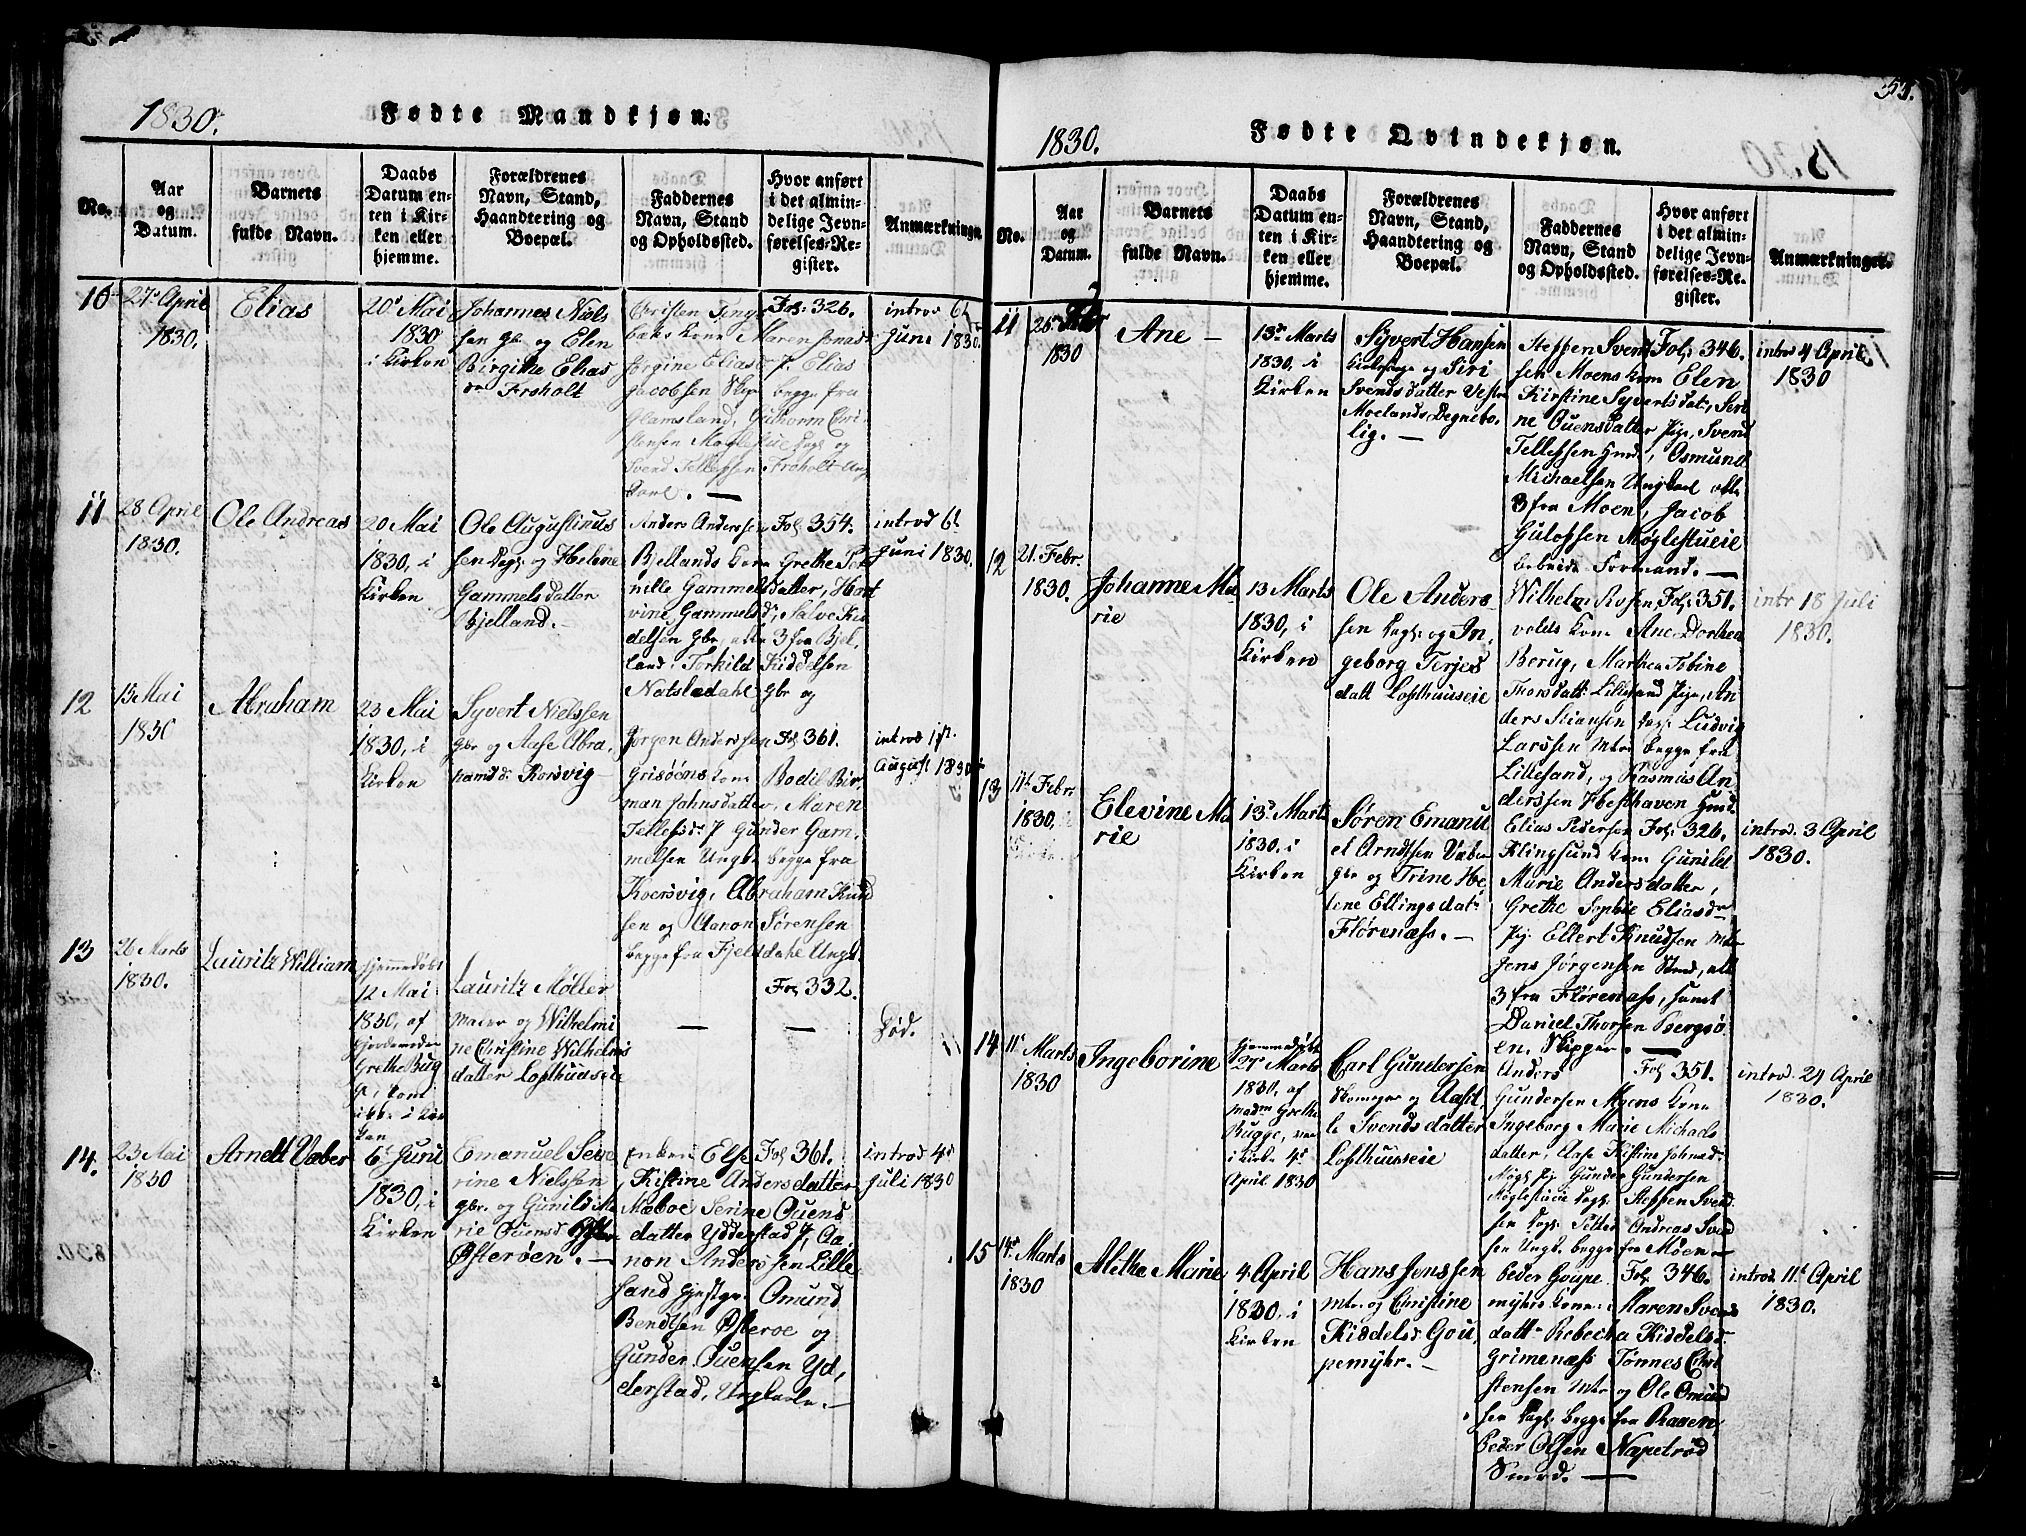 1830.
Fødte Mandkjøn.
No.
Aar
og
Datum.
Barnets
fulde Navn.
Daabs
Datum en-
ten i Kir-
ken eller
hjemme.
Forældrenes
Navn, Stand,
Haandtering og
Boepæl.
Faddernes
Navn, Stand
og Opholdssted.
Hvor anført
i det almin-
delige Jevn-
førelses-Re-
gister.
Anmærkninger.
10
27de April
1830.
Elias
20de Mai
1830
i Kirken
Johannes Niels
sen Gbr og Elen
Birgithe Elias
dr Froholt
Christen Ting
Maren Jonasd
Jørgine Eliasdr P. Elias
Jacobsen Skip begge fra
Glamsland, Guthorm Chri
stensen Møglestue Dagl og
Svend Tellefsen Froholt Ung
karl. —
Fol: 326.
introd 6t
Juni 1830.
11
28 April
1830.
Ole Andreas
20 Mai
1830, i
Kirken
Ole Augustinus
sen Dagl: og Helene
Gammelsdatter
Bjelland.—
Anders Anderssen
Bjellands kone Grethe Per
nille Gammelsdatter,
vine Gammelsd:, Salve Kid
delsen Gbr, alle 3 fra Bjel
land, Torkild Kiddelsen
Natsledahl Gbr og
Fol 354.
introd 6t
Juni 1830.
12
15 Mai
1830
Abraham
23 Mai
1830, i
Kirken
Syvert Nielssen
Gbr og Aase Abra
hamsd: Korsvig—
Jørgen Anderssen
Grisøens kone Bodil Bir
Johnsdatter, Maren
Tellefsdr P Gunder Gam
melsen Ungk begge fra
Koersvig, Abraham Knud
sen og Aanon Sørensen
begge fra Fjeldahl Ungk
Fol 361.
introd 1st
August 1830
13
26 Marts
1830.
Lauritz William
hjemmedøbt
12 Mai
1830, af
Gjordemoder
Grethe Bug
ge, kom
ikke i Kir
ken
Lauritz Møller
Maler og Wilhelmi
ne Christine Wilhelms
datter Lofthuuseie
—
Fol 332.
—
Død.
14.
23 Mai
1830
Arnelt Væber
6t Juni
1830, i
Kirken
Emanuel Seve
rine Nielssen
Gbr. og Gunild Ma
rie Ouensd
Østerøen. —
Enken Else
Kistine Andersdatter
Mæboe Serine Ouens
datter Ydderstad P, Aa
non Anderssen Lille
sand Gjestgr. Omund
Bendtsen Østeroe og
Gunder Ouensen Yd,
derstad, Ungkarle.—
Fol 361.
introd 4de
Juli 1830
53.
1830.
Fødte Qvindekjøn.
No.
Aar
og
Datum.
Barnets
fulde Navn.
Daabs
Datum en-
ten i Kir-
ken eller
hjemme.
Forældrenes
Navn, Stand,
Haandtering og
Boepæl.
Faddernes
Navn, Stand
og Opholdssted.
Hvor anført
i det almin-
delige Jevn-
førelses-Re-
gister.
Anmærkninger.
11
1830
Ane —
13de Marts
1830, i
Kirken
Syvert Hansen
og Siri
Svendsdatter Vestre
Moelands Degnebo
lig. —
Steffen Svend
sen Moens kone Elen
Kirstine Syvertsdat, Seri
ne Ouensdatter Pige, Svend
Tellefsen, Osmund
Michaelsen Ungkarl alle
3 fra Moen, Jacob
Gulofsen Møglestueie
Formand. —
Fol: 346.
introd 4 April
1830
12
21. Febr.
1830.
Johanne Ma
rie
13 Marts
1830, i
Kirken
Ole Anders
sen Dagl: og In
geborg Terjes
datt Lofthuuseie
Wilhelm
volds kone Ane Dorthea
Berug, Marthen Tobine
Thorsdatt: Lillesand Pige, An
ders Stiansen Dagl: Ludvig
Larssen Mtr begge fra
Lillesand, og Rasmus An
derssen Hæsthaven
Fol: 351.
intr 18 Juli
1830.
13
11t Febr
1830.
Elevine Ma
rie
13de Marts
1830. i
Kirken
Søren Emanu
el Arndtsen Væber
Gbr og Trine He
lene Ellingsdat:
Flørenæss. —
Elias Pedersen
Klingsund kone Gunild
Marie Andersdatter,
Grethe Sophie Eliasdr
Pij Ellert Knudsen Mtr
Jens Jørgensen Smed, alle
3 fra Flørenæss, samt
Daniel Thorsen Bergsø
en. Skipper. —
Fol: 326.
introd. 3 April
1830.
14
11t Marts
1830
Ingeborine
Hjemmedøbt
27de Marts
1830. af
Madm Grethe
Bugge,
i Kirk 4de
April 1830
Carl Gundersen
Skomager og Aase
Svendsdatter
Lofthuuseie
Anders
Gundersen Moens kone
Ingeborg Marie Michaels
datter, Aase Kistine Johnsd:
Møgl Pij Gunder Gundersen
Møglestueie Dagl: Steffen Svend
sen Dagl Tellef Andreas Svend
sen Ungk. begge fra Moen—
Fol 351.
introd. 24 April
1830.
15
14de Marts
1830
Alethe Marie
4. April
1830, i
Kirken
Hans Jenssen
Mtr. og Christine
Kiddelsd: Gou
pemyhr. —
Peder Goupe
myhrs kone Maren Svens
datt— Rebecka Kiddelsd—
Grimenæss Tønnes Chri
stensen Mtr og Ole Omund
sen Dagl: begge fra Raaen,
Peder Olsen Næpetrød
Smed. —
Fol: 346.
introd. 11t April
1830.